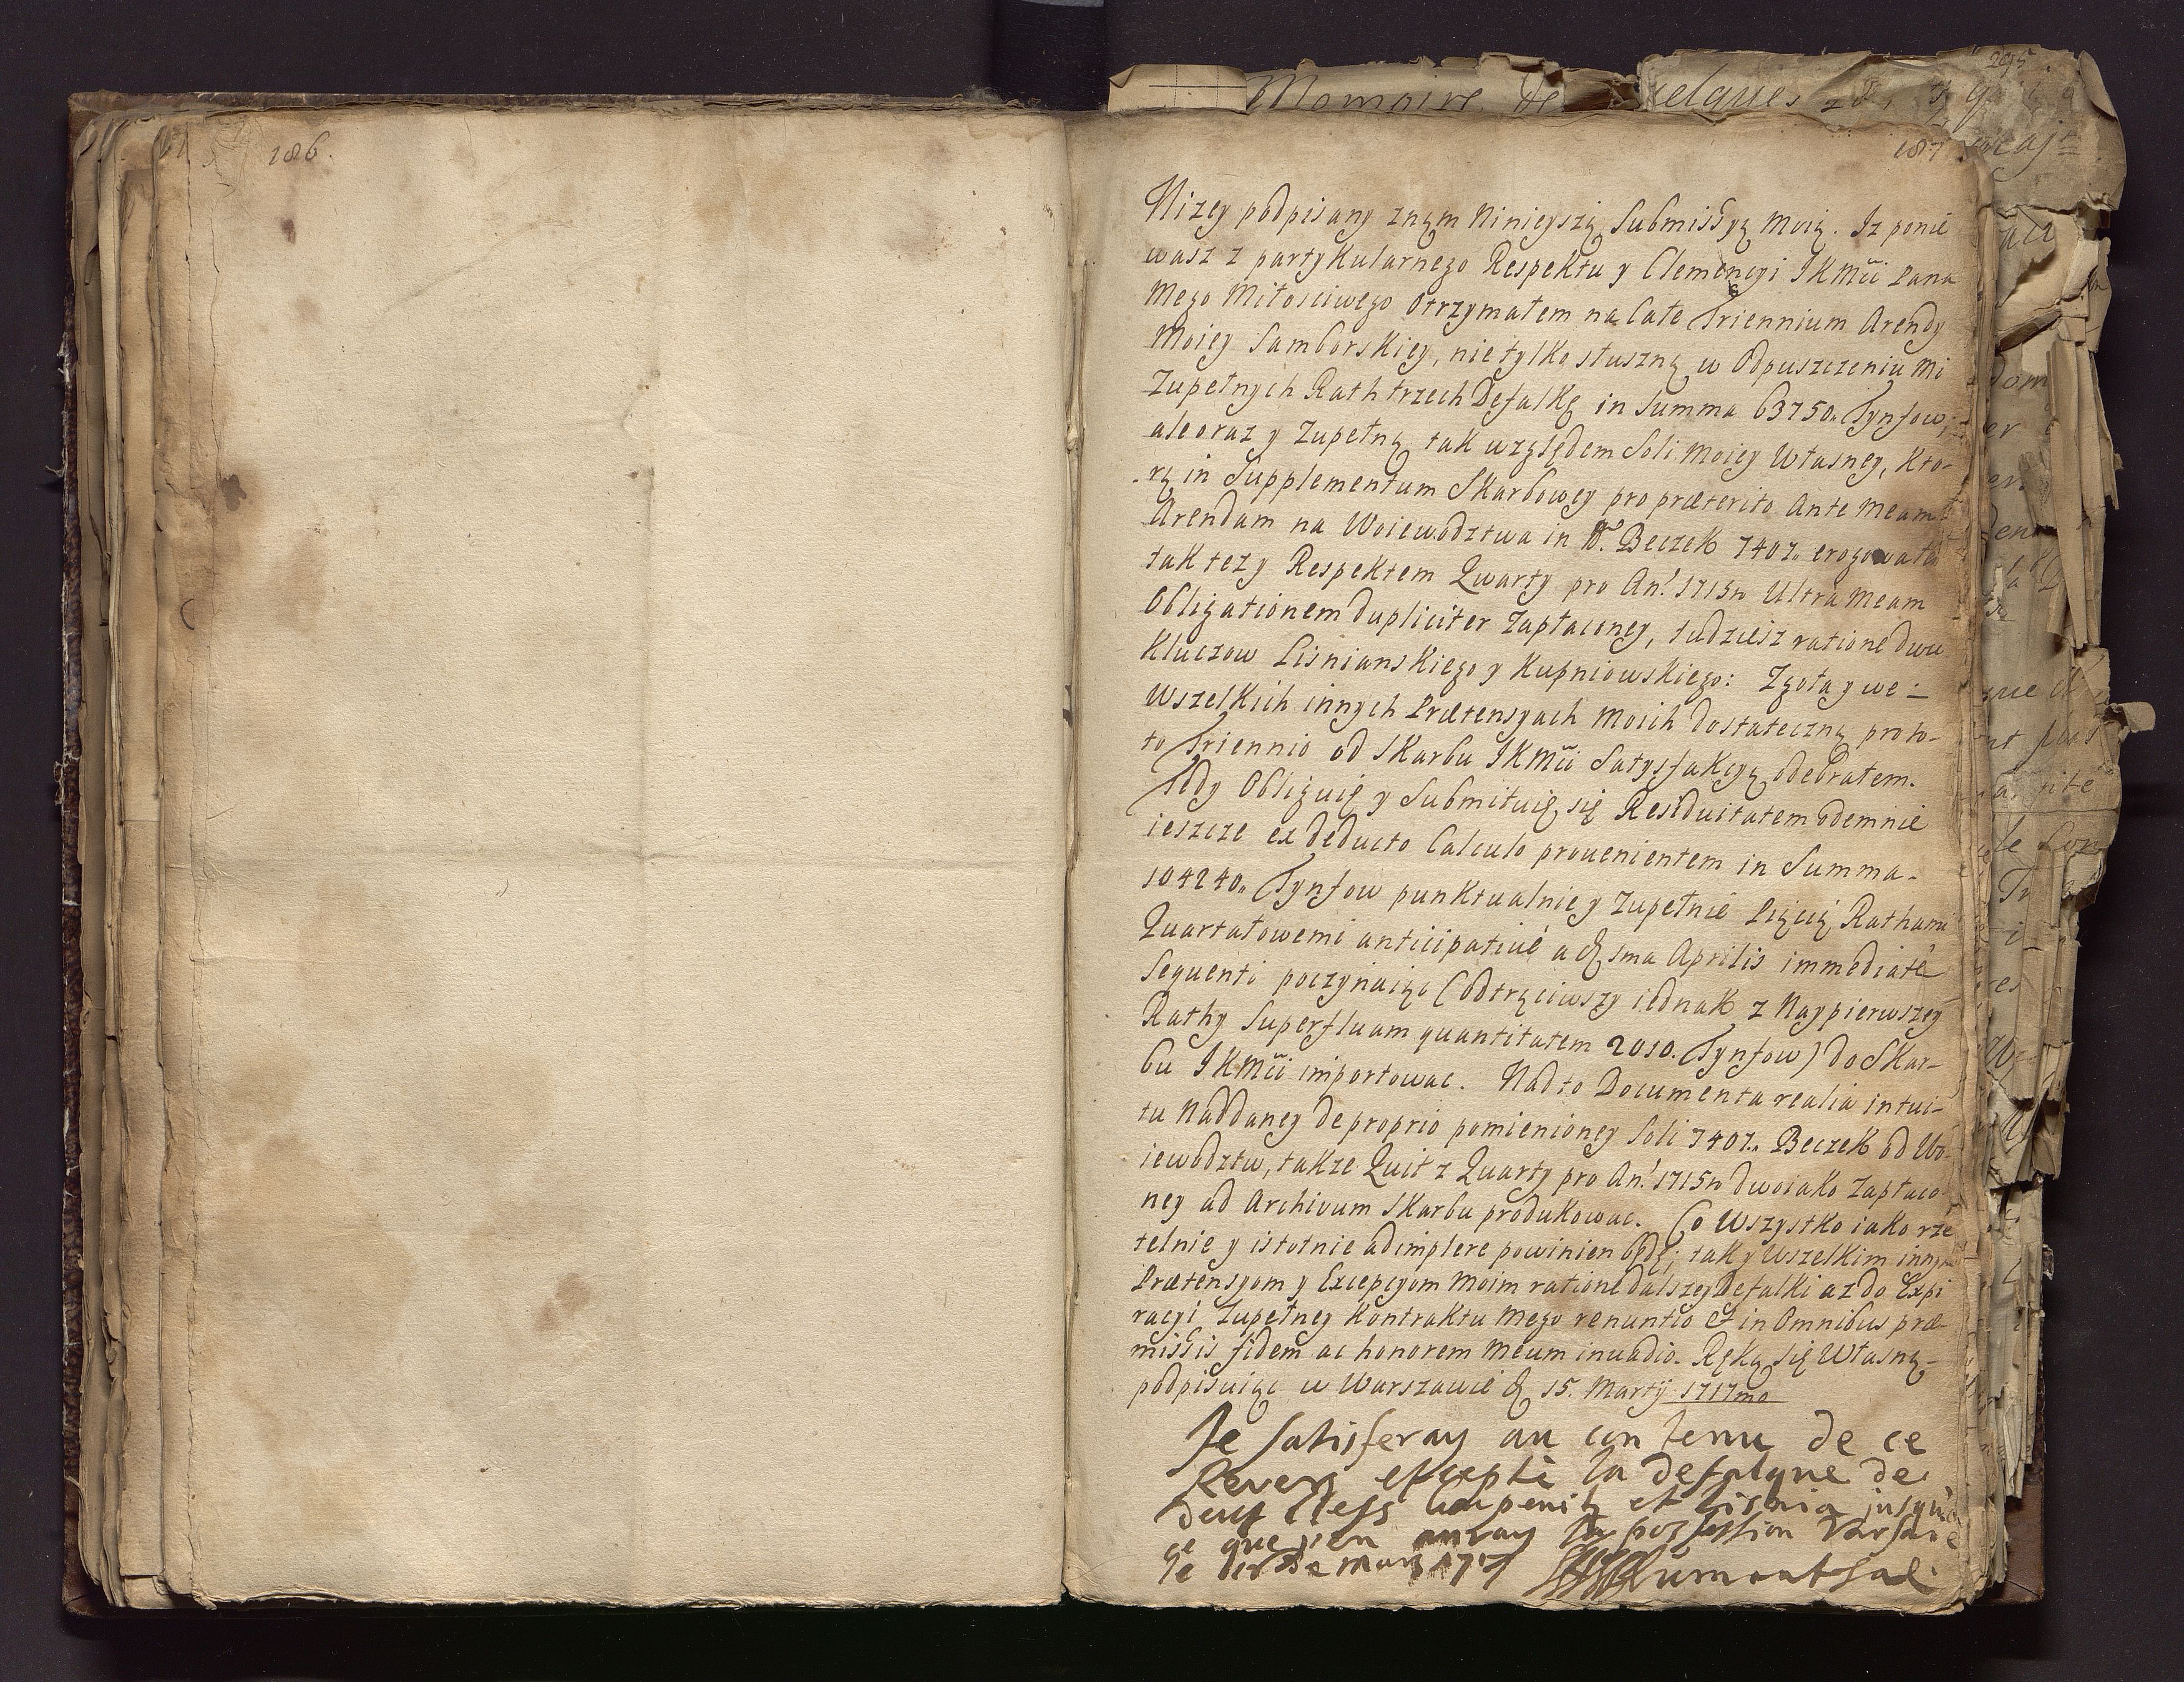 186.
187
Memoire de
Nizey podpisany znąm Ninieyszą Submissyą Moią. Iz ponie
wasz z partykularnego Respektu y Clemencyi JKMĉi Pana
Mego Miłosciwego Otrzymałem na Całe Triennium Arendy
Moiey Samborskiey, nie tylko słuszną w Odpuszczeniu Mi
Zupełnych Rath trzech Defalkę in Summa 63750. Tynfow,
ale oraz y Zupełną tak względem Soli Moiey Własney, Kto-
-rą in Supplementum Skarbowey pro præterito Ante Meam
Arendam na Woiewodztwa in Beczek 7407. erogowałem
tak tez y Respektem Quarty pro An: 1715to Ultra Meam
Obligationem dupliciter Zapłaconey, tudziesz ratione dwu
Kluczow Lisnianskiego y Kupniowskiego: Zgoła y we -
Wszelkich innych Prætensyach Moich dostateczną pro to-
to Triennio od Skarbu JKMĉi Satysfakcyą odebrałem.
Tedy Obliguię y Submituię się Residuitatem odemnie
ieszcze ex deducto Calculo prouenientem in Summa -
104240. Tynfow punktualnie y Zupełnie Pięcią Rathami
Quartałowemi anticipative a d 1ma Aprilis immediate
Sequenti poczynaiąc (odtrąciwszy iednak z Naypierwszey
Rathy Superfluam quantitatem 2010. Tynfow) do Skar-
bu JKMĉi importowac. Nad to Documenta realia intui-
tu Naddaney de proprio pomienioney Soli 7407. Beczek od Wo-
iewodztw, takze Quit z Quarty pro An: 1715to dwoiako Zapłaco-
ney ad Archivum Skarbu produkowac. Co Wszystko iako rze
telnie y istotnie adimplere powinien będę; tak y Wszelkim innym
Prætensyom y Excepcyom Moim ratione dalszey Defalki az do Expi
racyi Zupełney Kontraktu Mego renuntio et in Omnibus præ-
missis fidem ac honorem Meum inuadio. Ręką się Własną -
podpisuiąc w Warszawie d 15. Martij 1717mo
Je satisferay au contenu de ce
Revers excepté la defalque de
deux Clefs Coupenits et Lisnia jusqu'à
ce que j'en auray la possession Varsavie
le de Mars 1717